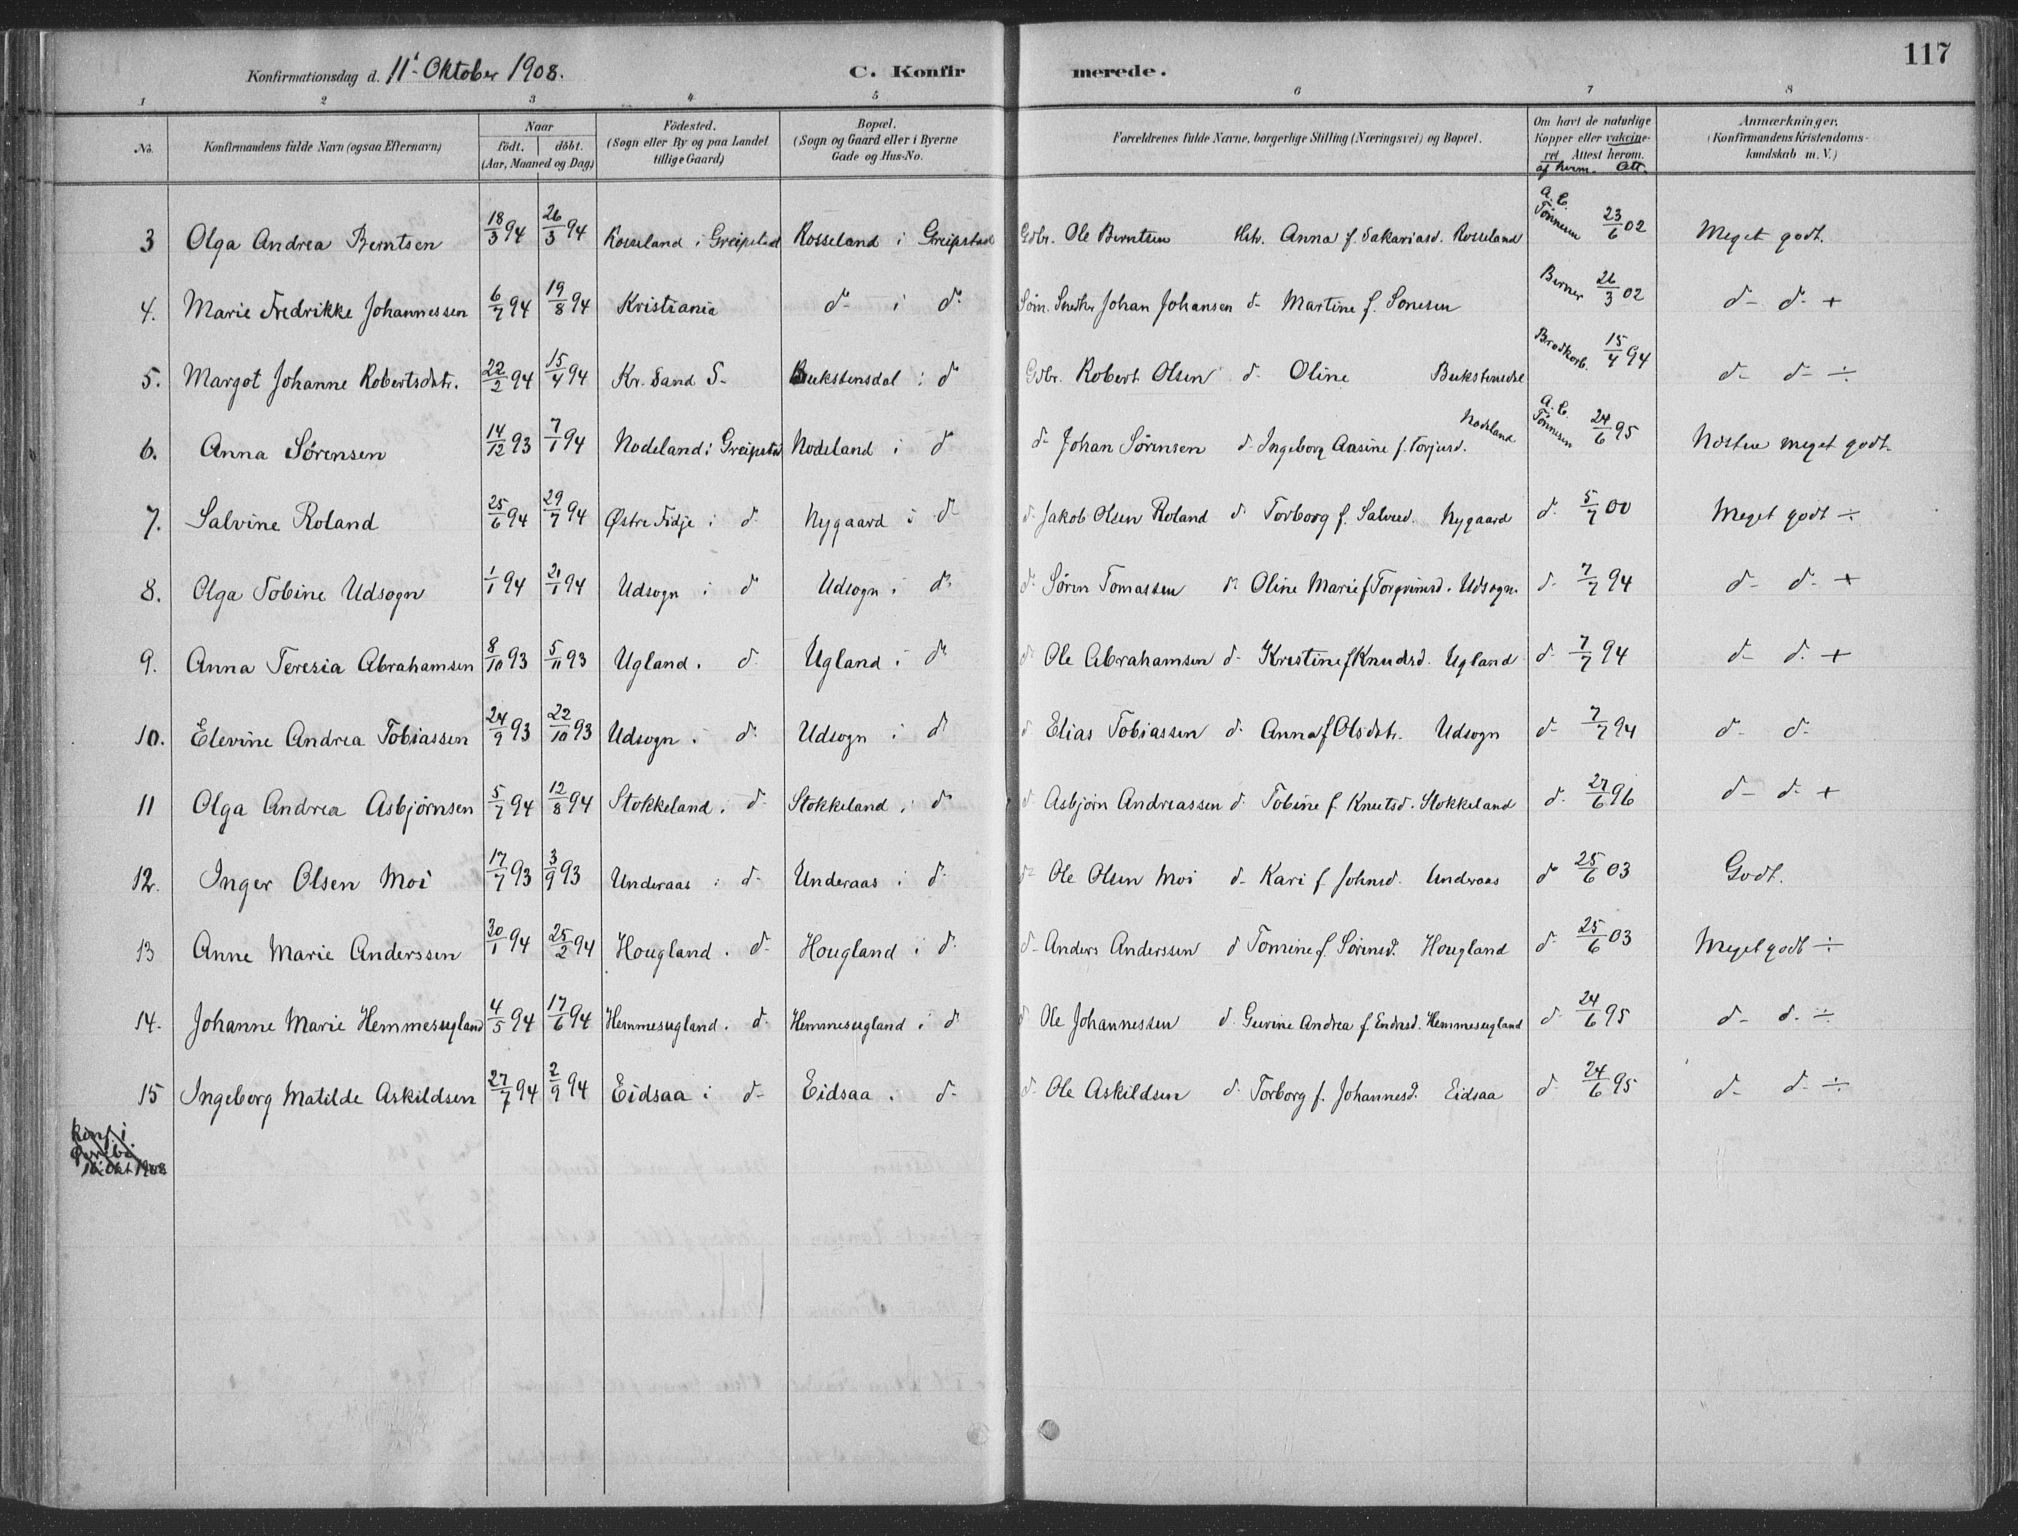 117
Konfirmationsdag d. 11' Oktober 1908. C. Konfirmerede.
1 2 3 4 5 6 7 8
No. Konfirmandens fulde Navn (ogsaa Efternavn) Naar födt. döbt. (Aar, Maaned og Dag) Födested. (Sogn eller By og paa Landet tillige Gaard) Bopæl. (Sogn og Gaard eller i Byerne Gade og Hus-No. Forældrenes fulde Navne, borgerlige Stilling (Næringsvei) og Bopæl. Om havt de naturlige Kopper eller vakcineret Attest herom. af hvem. Att. Anmærkninger. (Konfirmandens Kristendomskundskab m. V.)
3 Olga Andrea Berntsen 18/3 94 26/3 94 Rosseland i Greipstad Rosseland i Greipstad Gdbr. Ole Berntsen Hstr. Anna f. Sakariasd. Rosseland A. C. Tønnesen 23/6 02 Meget godt.
4. Marie Fredrikke Johannessen 6/7 94 19/8 94 Kristiania d- i d- Snedker Johan Johansen d- Martine f. Berner 26/3 02 d- d- +
5. Margot Johanne Robertsdtr. 22/2 94 15/4 94 Kr. Sand S- Bukstensdal i d Gdbr. Robert Olsen d- Oline Bukstensdal Brodkorb. 15/4 94 d- d- ÷
6. Anna Sørensen 14/12 93 7/1 94 Nodeland i Greipstad Nodeland i d d- Johan Sørensen d- Ingeborg Aasine f. Torjusd. Nodeland A. C. Tønnesen 24/6 95 Nesten meget godt.
7. Salvine Roland 25/6 94 29/7 94 Østre Fidje i d Nygaard i d- d Jakob Olsen Roland d- Torborg f. Salved. Nygaard d. 5/7 00 Meget godt ÷
8. Olga Tobine Udsogn 1/1 94 21/1 94 Udsogn i d Udsogn i d- d- Søren Tomassen d- Oline Marie f Torgrimsd. Udsogn. d- 7/7 94 d- d- +
9. Anna Teresia Abrahamsen 8/10 93 5/11 93 Ugland i d Ugland i d- d- Ole Abrahamsen d- Kristine f Knudsd. Ugland d- 7/7 94 d- d. +
10. Elevine Andrea Tobiassen 24/9 93 22/10 93 Udsogn i d- Udsogn i d- d Elias Tobiassen d- Anna f Olsdtr. Udsogn d- 7/7 94 d- d-
11 Olga Andrea Asbjørnsen 5/7 94 12/8 94 Stokkeland i d- Stokkeland i d- d Asbjørn Andreassen d- Tobine f. Knutsd. Stokkeland d. 27/6 96 d- d- +
12. Inger Olsen Moi 17/7 93 3/9 93 Underaas i d- Underaas i d- d- Ole Olsen Moi d- Kari f. Johnsd. Underaas d- 25/6 03 Godt.
13 Anne Marie Anderssen 30/1 94 25/2 94 Hougland i d- Hougland i d- d- Anders Anderssen d Tomine f. Sørensd. Hougland d- 25/6 03 Meget godt ÷
14. Johanne Marie Hemmesugland 4/5 94 17/6 94 Hemmesugland i d- Hemmesugland i d- d Ole Johannessen d. Guvine Andrea f. Endresd. Hemmesugland d- 24/6 95 d- d. ÷
15 Ingeborg Matilde Askildsen 27/7 94 2/9 94 Eidsaa i d- Eidsaa i d- d- Ole Askildsen d- Torborg f. Johannesd. Eidsaa d- 24/6 95 d- d- ÷
Konf. i
Øvrebø
Okt 1908